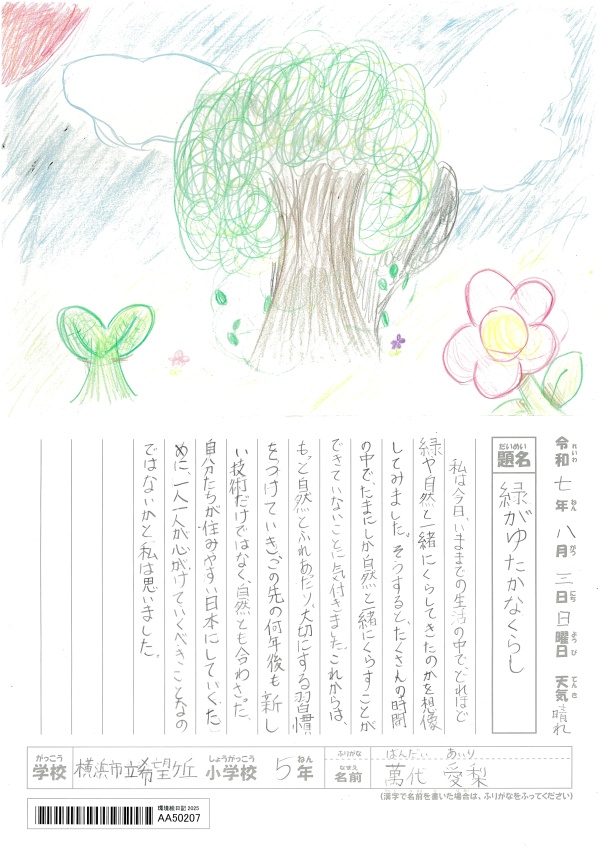 令和七年八月三日日曜日 天気晴れ
れいわ ねん がつ にち ようび てんき
だいめい
題名
緑がゆたかなくらし
私は今日、いままでの生活の中で、どれほど
緑や自然と一緒にくらしてきたのかを想像
してみました。そうすると、たくさんの時間
の中で、たまにしか自然と一緒にくらすことが
できていないことに気付きました。これからは、
もっと自然とふれあったり、大切にする習慣
をつけていき、この先の何年後も新し
い技術だけではなく、自然とも合わさった、
自分たちが住みやすい日本にしていくた
めに、一人一人が心がけていくべきことなの
ではないかと、私は思いました。
がっこう しょうがっこう ねん
学校 横浜市立希望ケ丘 小学校 5年
ふりがな ばんだい あいり
なまえ
名前 萬代 愛梨
(漢字で名前を書いた場合は、ふりがなをふってください)
環境絵日記 2025
AA50207